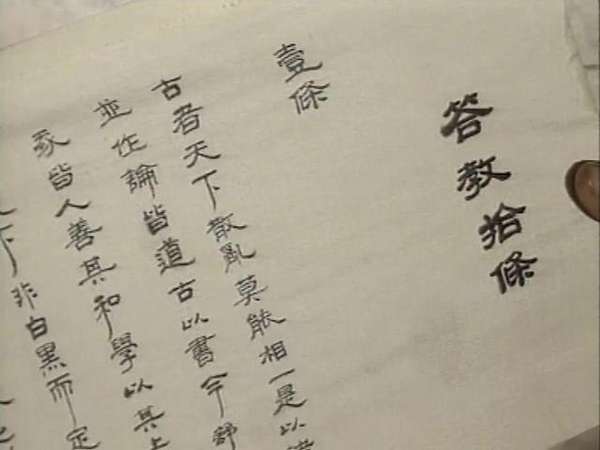 答教拾條
壹條
古者天下散亂莫能相一是以
並作論皆道古以書今舒
豕皆人善其和學以其上
下非白黑而定